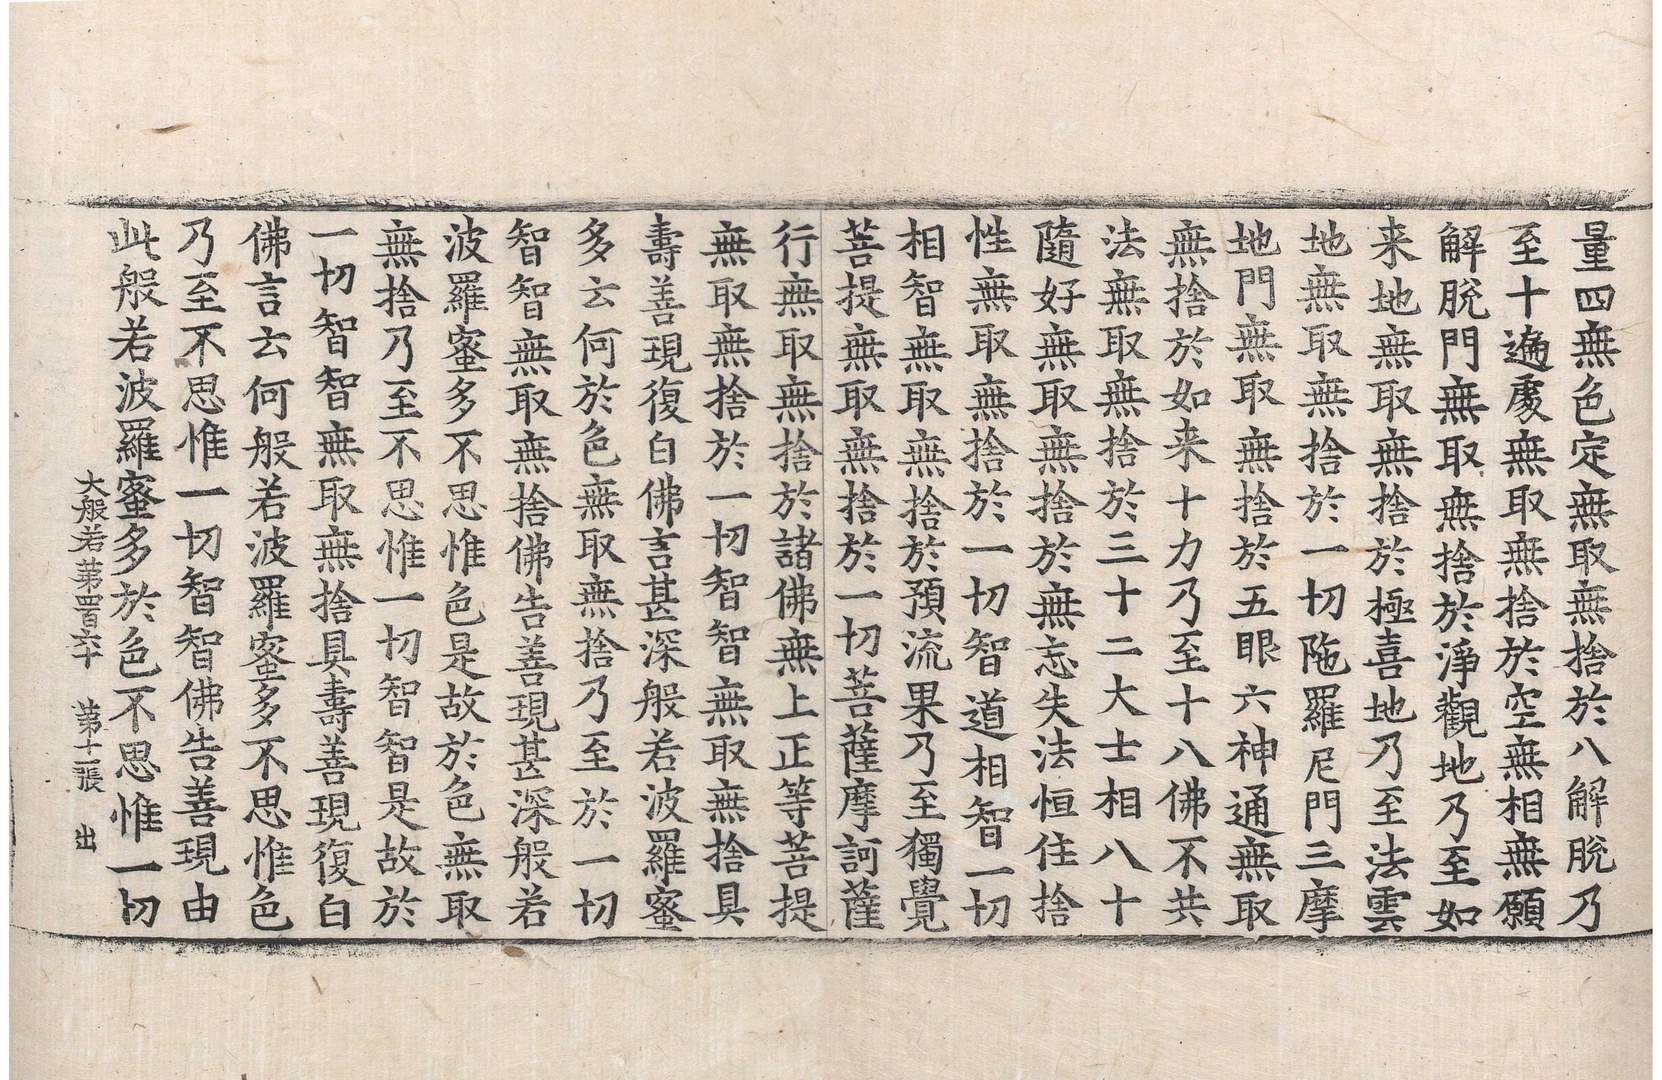 量四無色定無取無捨於八解脫乃
至十遍處無取無捨於空無相無願
解脫門無取無捨於淨觀地乃至如
来地無取無捨於極喜地乃至法雲
地無取無捨於一切陁羅尼門三摩
地門無取無捨於五眼六神通無取
無捨於如来十力乃至十八佛不共
法無取無捨於三十二大士相八十
隨好無取無捨於無忘失法恒住捨
性無取無捨於一切智道相智一切
相智無取無捨於預流果乃至獨覺
菩提無取無捨於一切菩薩摩訶薩
行無取無捨於諸佛無上正等菩提
無取無捨於一切智智無取無捨具
壽善現復白佛言甚深般若波羅蜜
多云何於色無取無捨乃至於一切
智智無取無捨佛告善現甚深般若
波羅蜜多不思惟色是故於色無取
無捨乃至不思惟一切智智是故於
一切智智無取無捨具壽善現復白
佛言云何般若波羅蜜多不思惟色
乃至不思惟一切智智佛告善現由
此般若波羅蜜多於色不思惟一切
大般若第四百六十 第十一張 出